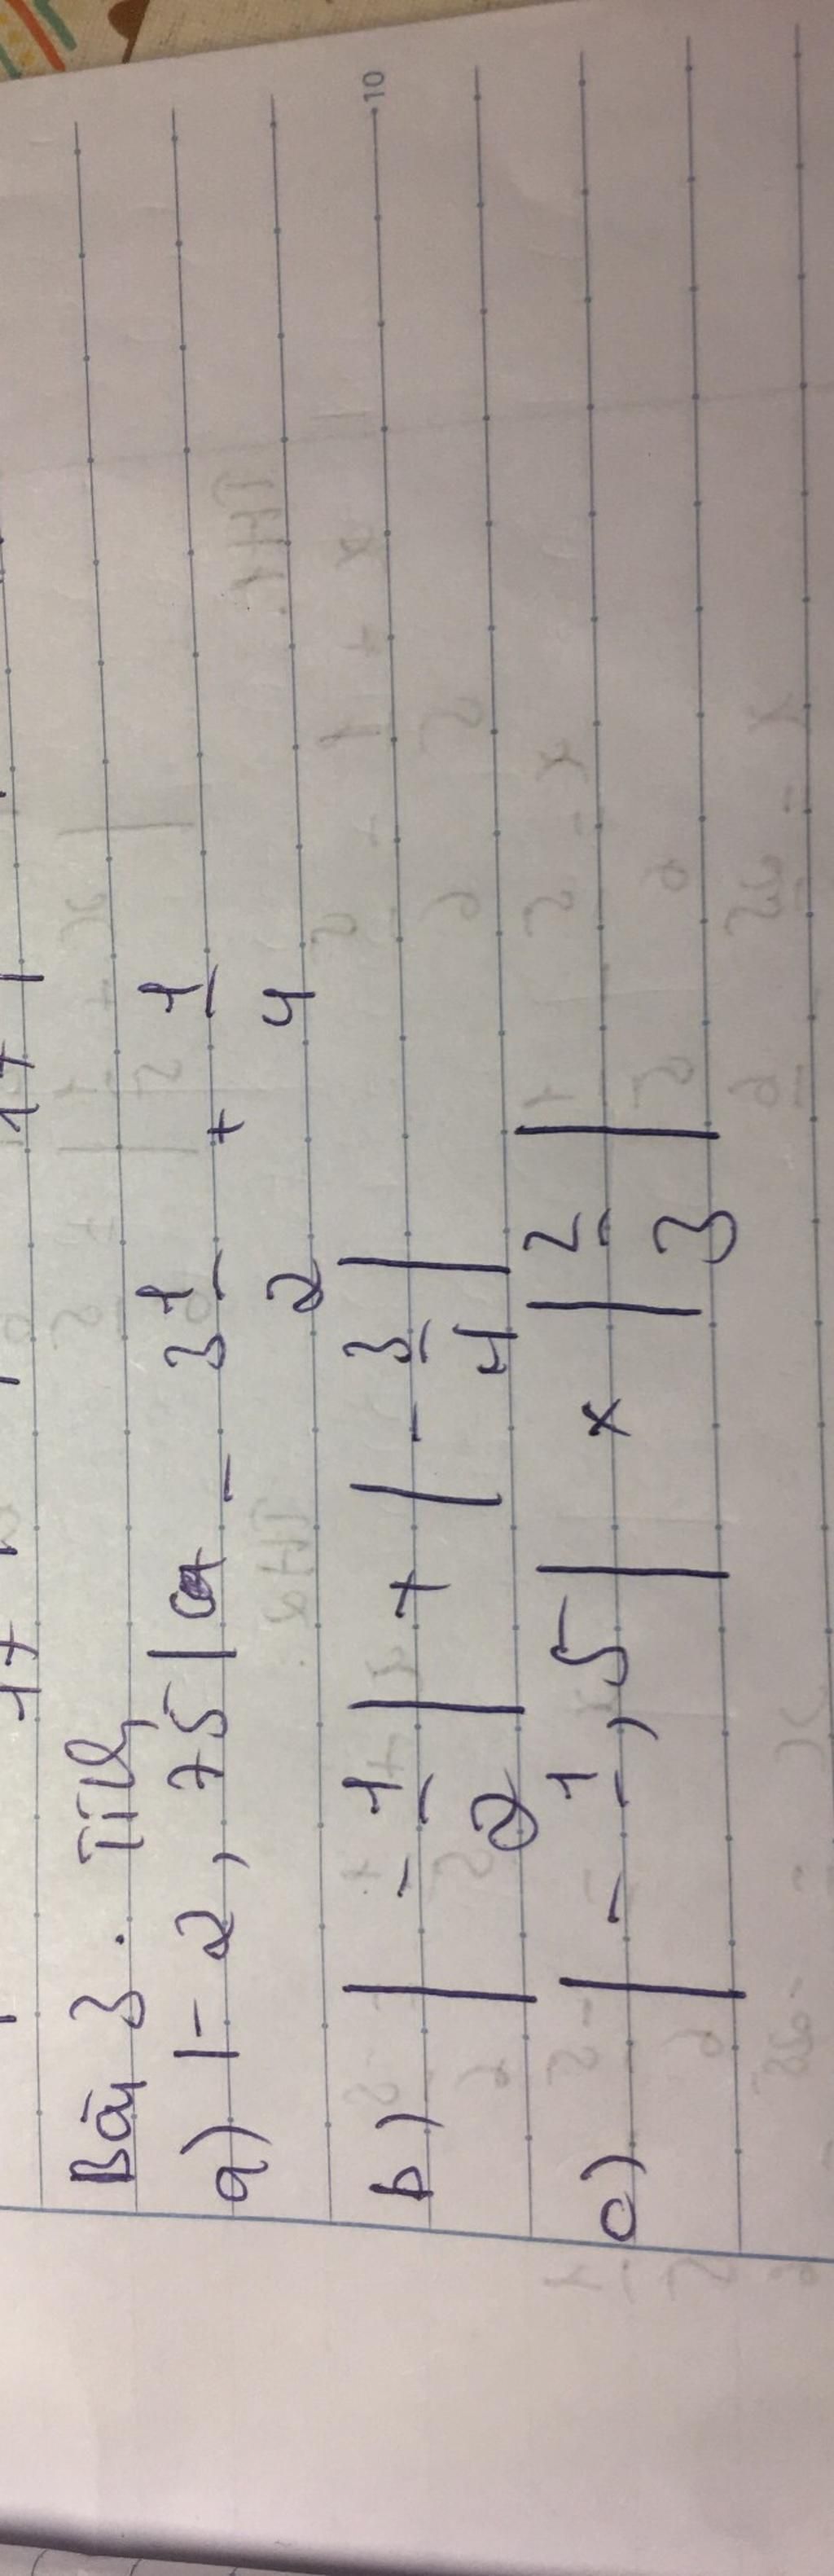 Bài 3. Tính
a) |-2,75| - 3 1/2 + 1/4
b) |-1/2| + |-3/4|
c) |-1,5| × |2/3|
10